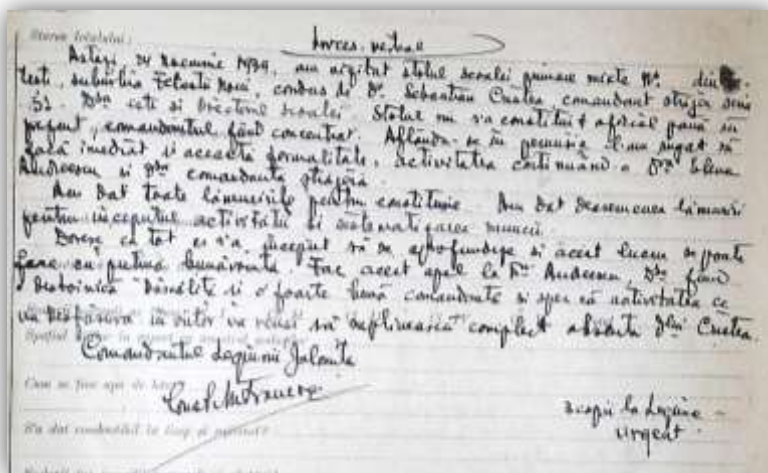 Starea localului:
Proces-verbal
Astăzi, 24 Noemvrie 1939, am vizitat stolul școalei primare mixte Nr. din
tești, suburbia Fetești Noui, condus de Dl. Sebastian Cristea, comandant străjer seria
52. Dsa este și Directorul școalei. Stolul nu s'a constituit oficial până în
prezent, comandantul fiind concentrat. Aflându-se în permisie l-am rugat să
facă imediat și această formalitate, activitatea continuând-o Dna Elena
Andreescu și Dna comandantă străjeră.
Am dat toate lămuririle pentru constituire. Am dat deasemenea lămuriri
pentru începutul activității și sistematizarea muncii.
Doresc ca tot ce s'a început să se aprofundeze și acest lucru se poate
face cu puțină bunăvoință. Fac acest apel la Dna Andreescu, Dsa fiind
o destoinică și o foarte bună comandantă și sper că activitatea ce
va desfășura în viitor va reuși să suplinească complect absența Dlui Cristea.
Comandantul Legiunii Ialomița
Cum se face apa de
S'a dat combustibil la timp și suficient?
3 copii la Legiune -
urgent